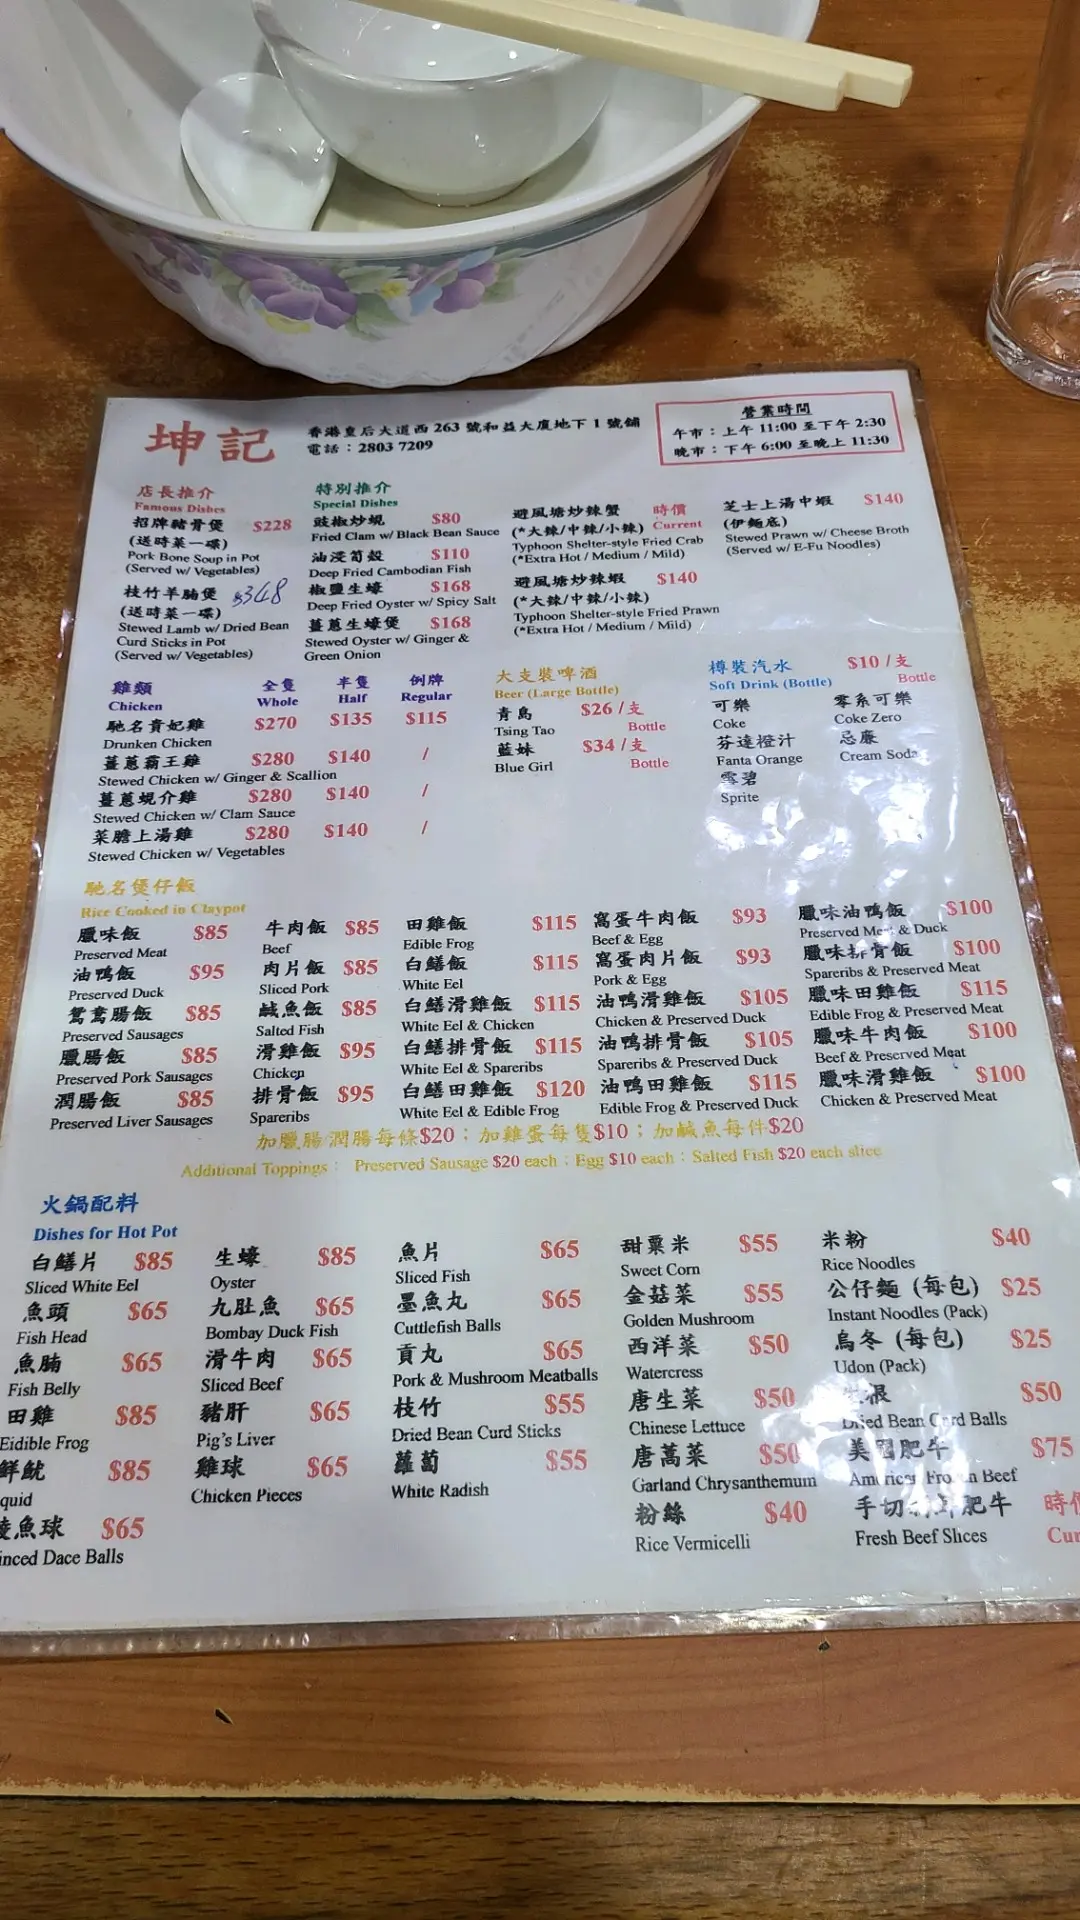 坤記
香港皇后大道西 263 號和益大廈地下 1 號舖
電話：2803 7209
營業時間
午市：上午 11:00 至下午 2:30
晚市：下午 6:00 至晚上 11:30
店長推介
Famous Dishes
招牌豬骨煲 $228
(送時菜一碟)
Pork Bone Soup in Pot
(Served w/ Vegetables)
枝竹羊腩煲 $348
(送時菜一碟)
Stewed Lamb w/ Dried Bean
Curd Sticks in Pot
(Served w/ Vegetables)
特別推介
Special Dishes
豉椒炒蜆 $80
Fried Clam w/ Black Bean Sauce
油浸筍殼 $110
Deep Fried Cambodian Fish
椒鹽生蠔 $168
Deep Fried Oyster w/ Spicy Salt
薑蔥生蠔煲 $168
Stewed Oyster w/ Ginger &
Green Onion
避風塘炒辣蟹 時價
(*大辣/中辣/小辣) Current
Typhoon Shelter-style Fried Crab
(*Extra Hot / Medium / Mild)
避風塘炒辣蝦 $140
(*大辣/中辣/小辣)
Typhoon Shelter-style Fried Prawn
(*Extra Hot / Medium / Mild)
芝士上湯中蝦 $140
(伊麵底)
Stewed Prawn w/ Cheese Broth
(Served w/ E-Fu Noodles)
雞類 全隻 半隻 例牌
Chicken Whole Half Regular
馳名貴妃雞 $270 $135 $115
Drunken Chicken
薑蔥霸王雞 $280 $140 /
Stewed Chicken w/ Ginger & Scallion
薑蔥蜆介雞 $280 $140 /
Stewed Chicken w/ Clam Sauce
菜膽上湯雞 $280 $140 /
Stewed Chicken w/ Vegetables
大支裝啤酒
Beer (Large Bottle)
青島 $26 /支
Tsing Tao Bottle
藍妹 $34 /支
Blue Girl Bottle
樽裝汽水 $10 /支
Soft Drink (Bottle) Bottle
可樂 零系可樂
Coke Coke Zero
芬達橙汁 忌廉
Fanta Orange Cream Soda
雪碧
Sprite
馳名煲仔飯
Rice Cooked in Claypot
臘味飯 $85
Preserved Meat
油鴨飯 $95
Preserved Duck
鴛鴦腸飯 $85
Preserved Sausages
臘腸飯 $85
Preserved Pork Sausages
潤腸飯 $85
Preserved Liver Sausages
牛肉飯 $85
Beef
肉片飯 $85
Sliced Pork
鹹魚飯 $85
Salted Fish
滑雞飯 $95
Chicken
排骨飯 $95
Spareribs
田雞飯 $115
Edible Frog
白鱔飯 $115
White Eel
白鱔滑雞飯 $115
White Eel & Chicken
白鱔排骨飯 $115
White Eel & Spareribs
白鱔田雞飯 $120
White Eel & Edible Frog
窩蛋牛肉飯 $93
Beef & Egg
窩蛋肉片飯 $93
Pork & Egg
油鴨滑雞飯 $105
Chicken & Preserved Duck
油鴨排骨飯 $105
Spareribs & Preserved Duck
油鴨田雞飯 $115
Edible Frog & Preserved Duck
臘味油鴨飯 $100
Preserved Meat & Duck
臘味排骨飯 $100
Spareribs & Preserved Meat
臘味田雞飯 $115
Edible Frog & Preserved Meat
臘味牛肉飯 $100
Beef & Preserved Meat
臘味滑雞飯 $100
Chicken & Preserved Meat
加臘腸/潤腸每條$20；加雞蛋每隻$10；加鹹魚每件$20
Additional Toppings： Preserved Sausage $20 each；Egg $10 each；Salted Fish $20 each slice
火鍋配料
Dishes for Hot Pot
白鱔片 $85
Sliced White Eel
魚頭 $65
Fish Head
魚腩 $65
Fish Belly
田雞 $85
Eidible Frog
鮮魷 $85
quid
鯪魚球 $65
inced Dace Balls
生蠔 $85
Oyster
九肚魚 $65
Bombay Duck Fish
滑牛肉 $65
Sliced Beef
豬肝 $65
Pig's Liver
雞球 $65
Chicken Pieces
魚片 $65
Sliced Fish
墨魚丸 $65
Cuttlefish Balls
貢丸 $65
Pork & Mushroom Meatballs
枝竹 $55
Dried Bean Curd Sticks
蘿蔔 $55
White Radish
甜粟米 $55
Sweet Corn
金菇菜 $55
Golden Mushroom
西洋菜 $50
Watercress
唐生菜 $50
Chinese Lettuce
唐萵菜 $50
Garland Chrysanthemum
粉絲 $40
Rice Vermicelli
米粉 $40
Rice Noodles
公仔麵 (每包) $25
Instant Noodles (Pack)
烏冬 (每包) $25
Udon (Pack)
生根 $50
Dried Bean Curd Balls
美國肥牛 $75
American Frozen Beef
手切 肥牛 時價
Fresh Beef Slices Cur